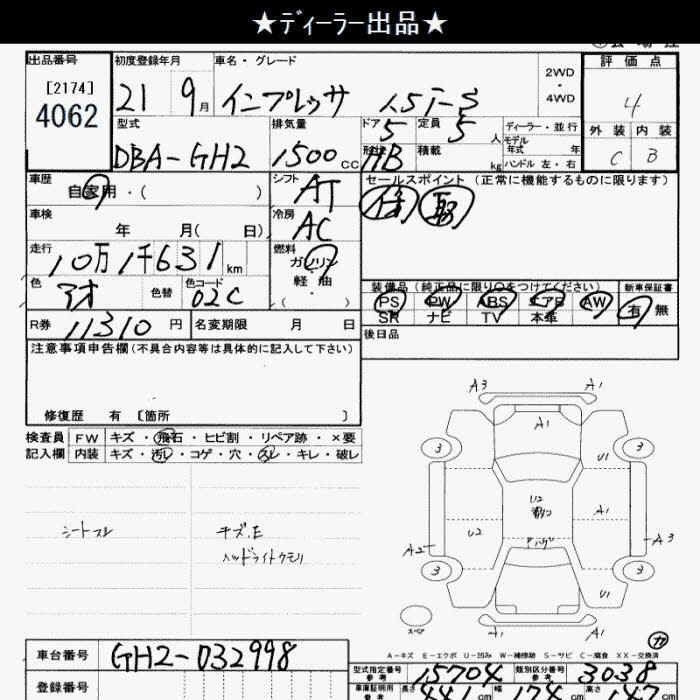 ★ディーラー出品★
出品番号 初度登録年月 車名・グレード 評価点
[2174] 4062 21 9月 インプレッサ 1.5i-S 2WD・4WD 4
型式 排気量 ドア 定員 ディーラー・並行 外装 内装
DBA-GH2 1500cc 5 5人 モデル年式 年 C B
形状 HB 積載 kg ハンドル 左・右
車歴 自家用・( ) シフト AT セールスポイント (正常に機能するものに限ります)
車検 年 月( 日) 冷房 AC
走行 10万1千631km 燃料 ガソリン 軽油 ・( )
色 アオ 色替 色コード 02C
装備品 (純正品に限り○をつけてください) 新車保証書
PS PW ABS エアB AW 有 無
R券 11310円 名変期限 月 日 SR ナビ TV 本革
後日品
注意事項申告欄(不具合内容等は具体的に記入して下さい)
修復歴 有 〔箇所 〕
検査員 FW キズ・飛石・ヒビ割・リペア跡・×要
記入欄 内装 キズ・汚レ・コゲ・穴・スレ・キレ・破レ
A3 A1
A1
3 3
U1
シートスレ キズ.E
ヘッドライトクモリ
U2
U2 A1
A2 A3
3 3
U1
スペア
A1 A1
A-キズ E-エクボ U-凹み W-補修跡 S-サビ C-腐食 XX-交換済
車台番号 GH2-032998
型式指定番号 参考 15704 類別区分番号 参考 3038
登録番号 車庫証明用 参考 長さ 441cm 幅 174cm 高さ 147cm